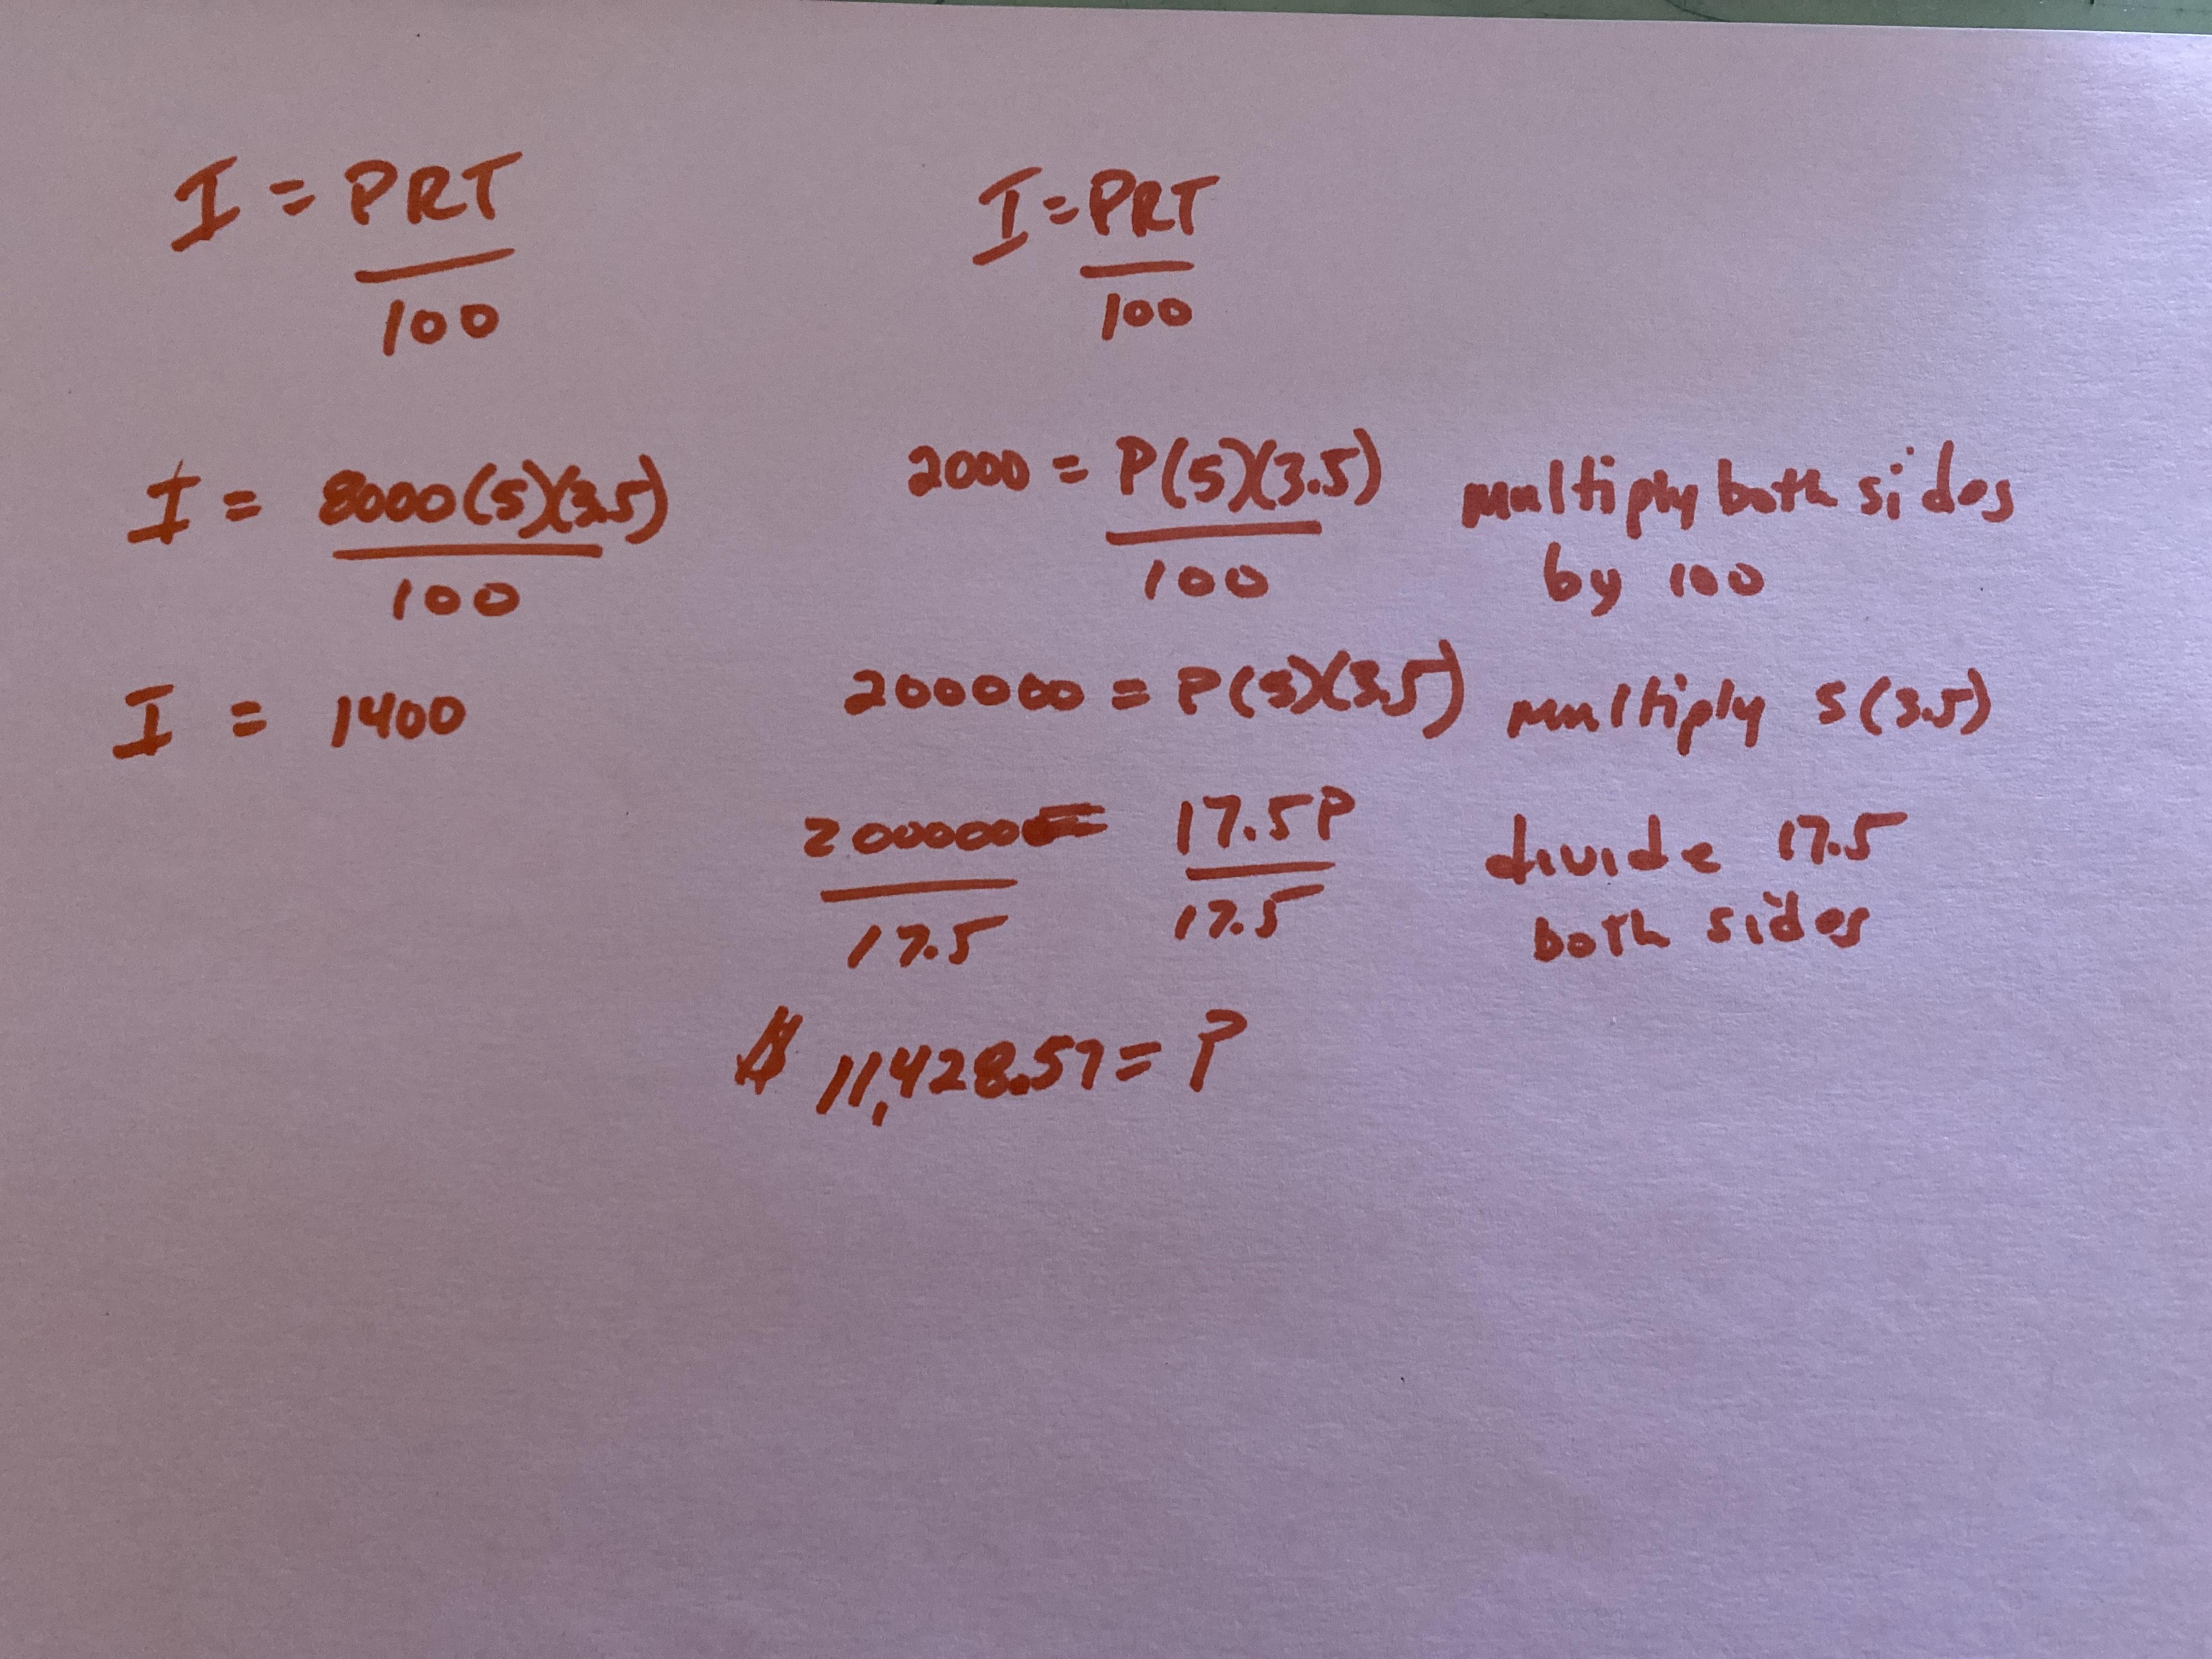 I = PRT
100
I = 8000(5)(3.5)
100
I = 1400
I = PRT
100
2000 = P(5)(3.5) multiply both sides
100 by 100
200000 = P(5)(3.5) multiply 5(3.5)
200000 = 17.5P divide 17.5
17.5 17.5 both sides
$ 11,428.57 = P